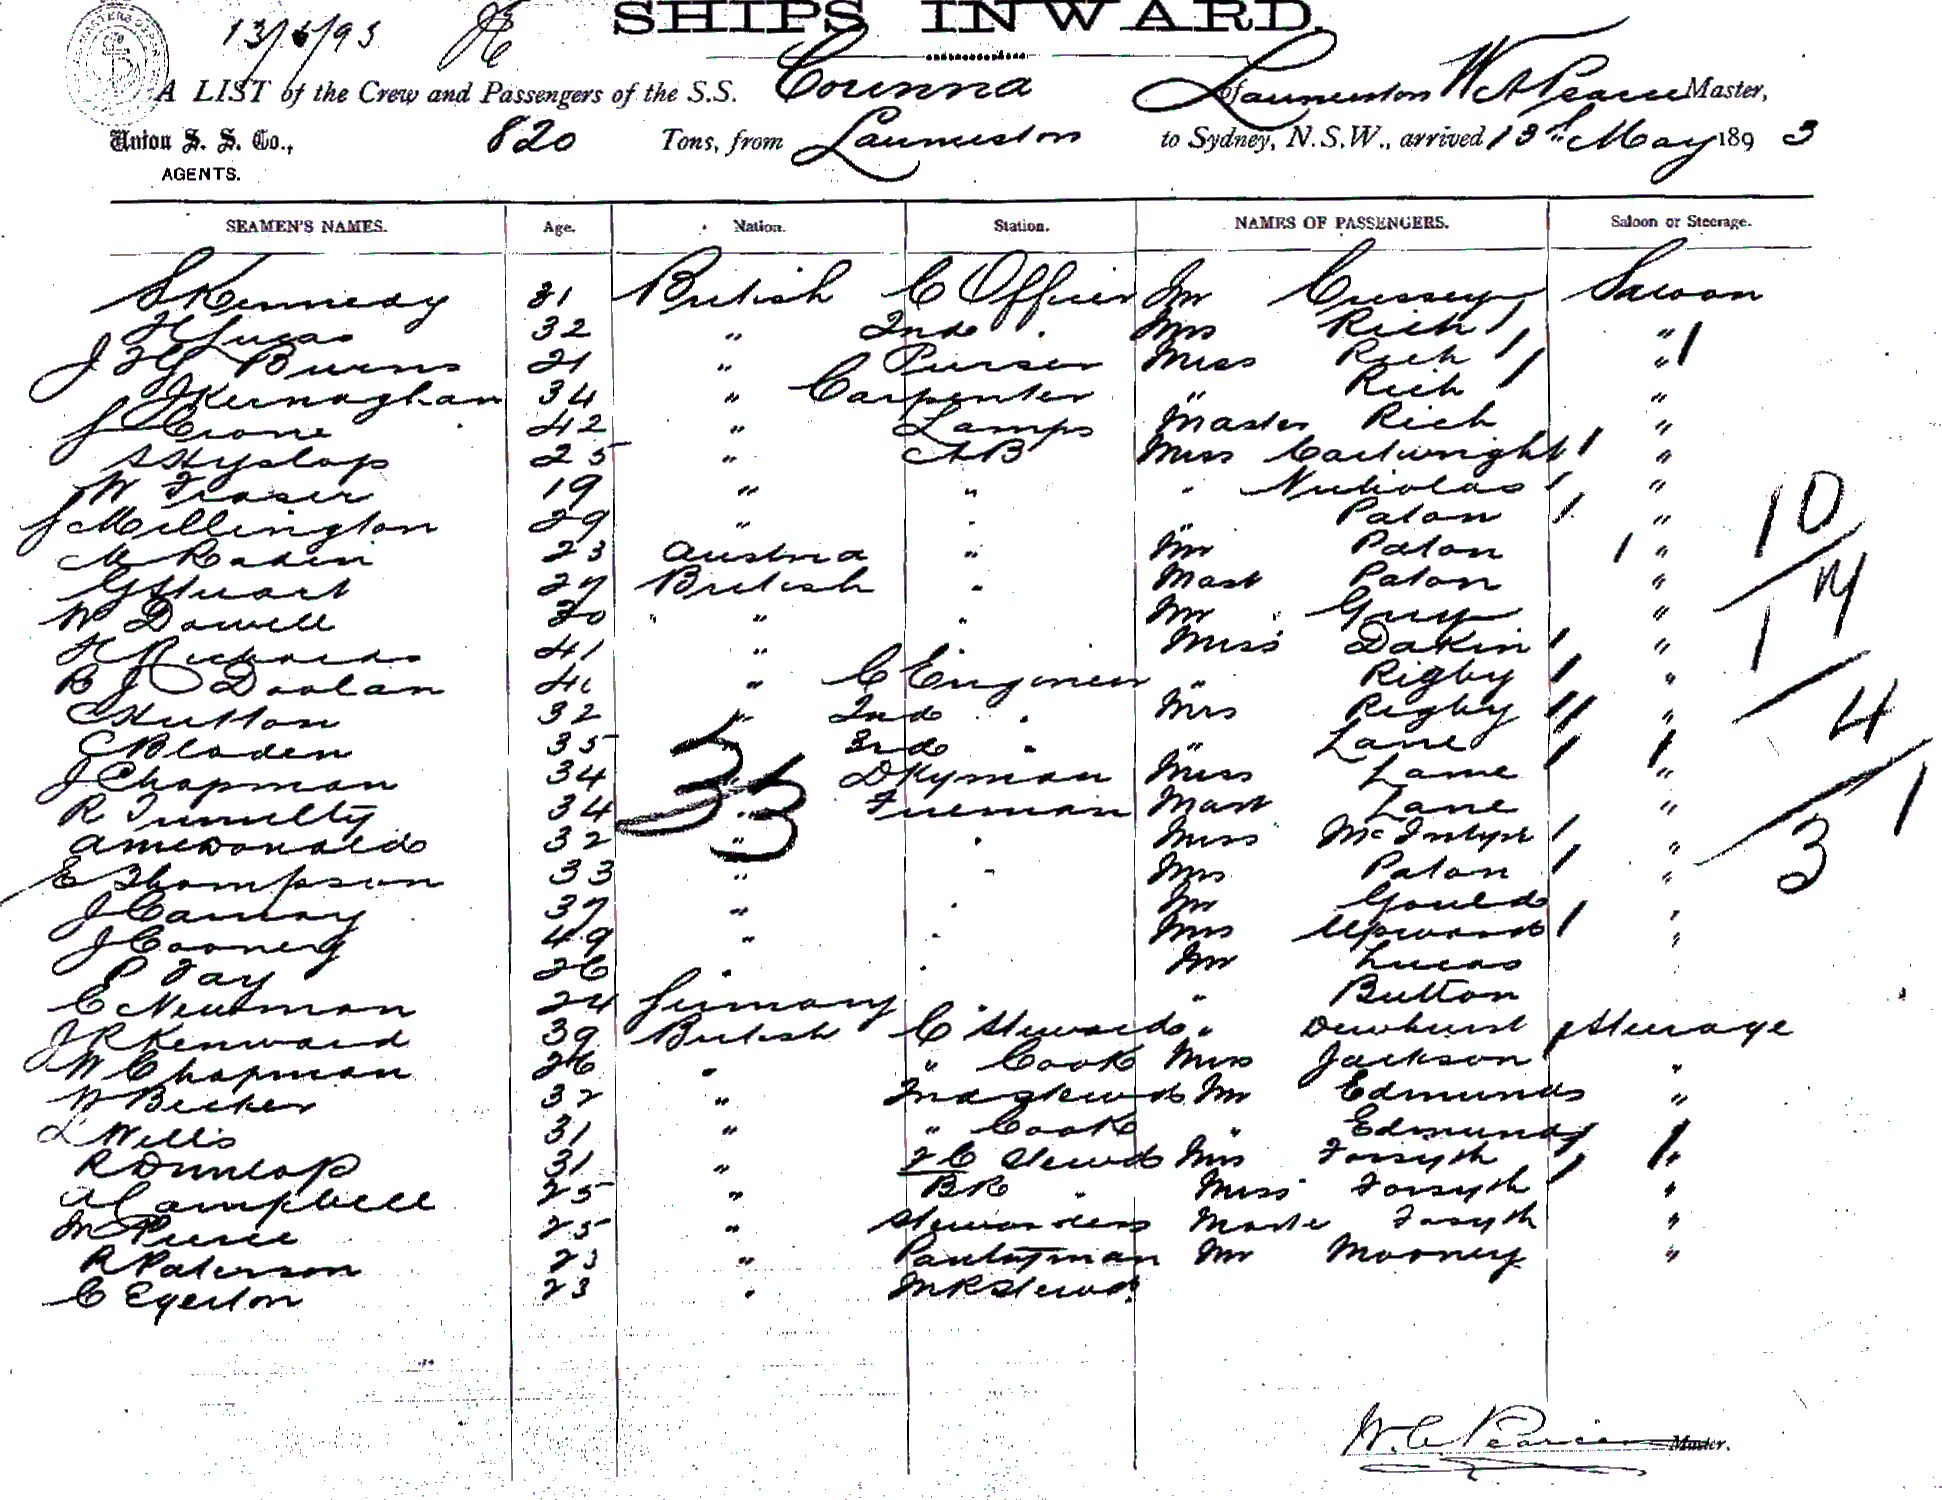 13/5/93
SHIPS INWARD.
A LIST of the Crew and Passengers of the S.S. Corinna of Launceston W A Pearce Master,
Union S. S. Co., 820 Tons, from Launceston to Sydney, N.S.W., arrived 13th May 1893
AGENTS.
SEAMEN'S NAMES. Age. Nation. Station. NAMES OF PASSENGERS. Saloon or Steerage.
S Kennedy 31 British C Officer Mr Saloon
H Lucas 32 " 2nd " Mrs Rich " 1
J H G Burns 21 " Purser Miss Rich "
J Kernaghan 34 " Carpenter " Rich "
J Crone 42 " Lamps Master Rich "
A Hyslop 25 " A B Miss Cartwright 1 "
W Fraser 19 " " " Nicholas 1 "
J Millington 29 " " " Paton 1 "
M Radin 23 Austria " Mr Paton 1 "
G Stuart 27 British " Mast Paton "
W Dowell 20 " " Mr Guy "
H Richards 41 " Miss Dakin 1 "
B J Doolan 41 " C Engineer " Rigby 1 "
C Hutton 32 " 2nd " Mrs Rigby 11 "
C Bladen 35 " 3rd " " Lane 1 1
J Chapman 34 " Dkyman Miss Lane "
R Tumulty 34 " Fireman Mast Lane "
A McDonald 32 " " Miss McIntyre 1 "
E Thompson 33 " " Mrs Paton 1 "
J Conway 37 " " Mr Gould "
J Cooney 49 " " Mrs Upward 1 "
P Fay 26 " " Mr Lucas
C Newman 24 Germany " " Button
J R Kenward 39 British C Steward " Dewhurst Steerage
W Chapman 26 " " Cook Miss Jackson "
W Becker 32 " 2nd Stewd Mr Edmunds "
L Wells 31 " " Cook " Edmunds
R Dunlop 31 " F C Stewd Mrs Forsyth 1 "
A Campbell 25 " B R " Miss Forsyth 1 "
M Pierce 25 " Stewardess Master Forsyth "
R Paterson 23 " Pantryman Mr Mooney "
C Egerton 23 " M R Stewd
33
10
14
1
4
1
3
W. A. Pearce Master.